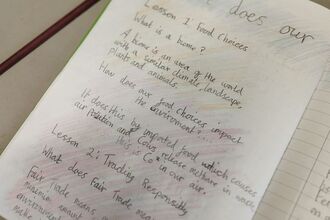 does our
Lesson 2: Food Choices
What is a biome?
A biome is an area of the world
with a similar climate, landscape,
plants and animals.
How does our food choices impact
the environment?
It does this by imported food which causes
air pollution and Cows release methane in
This is Co² in our air.
Lesson 2: Trading Responsibly
What does Fair Trade mean
Fair Trade means
minimum amount
environment
make